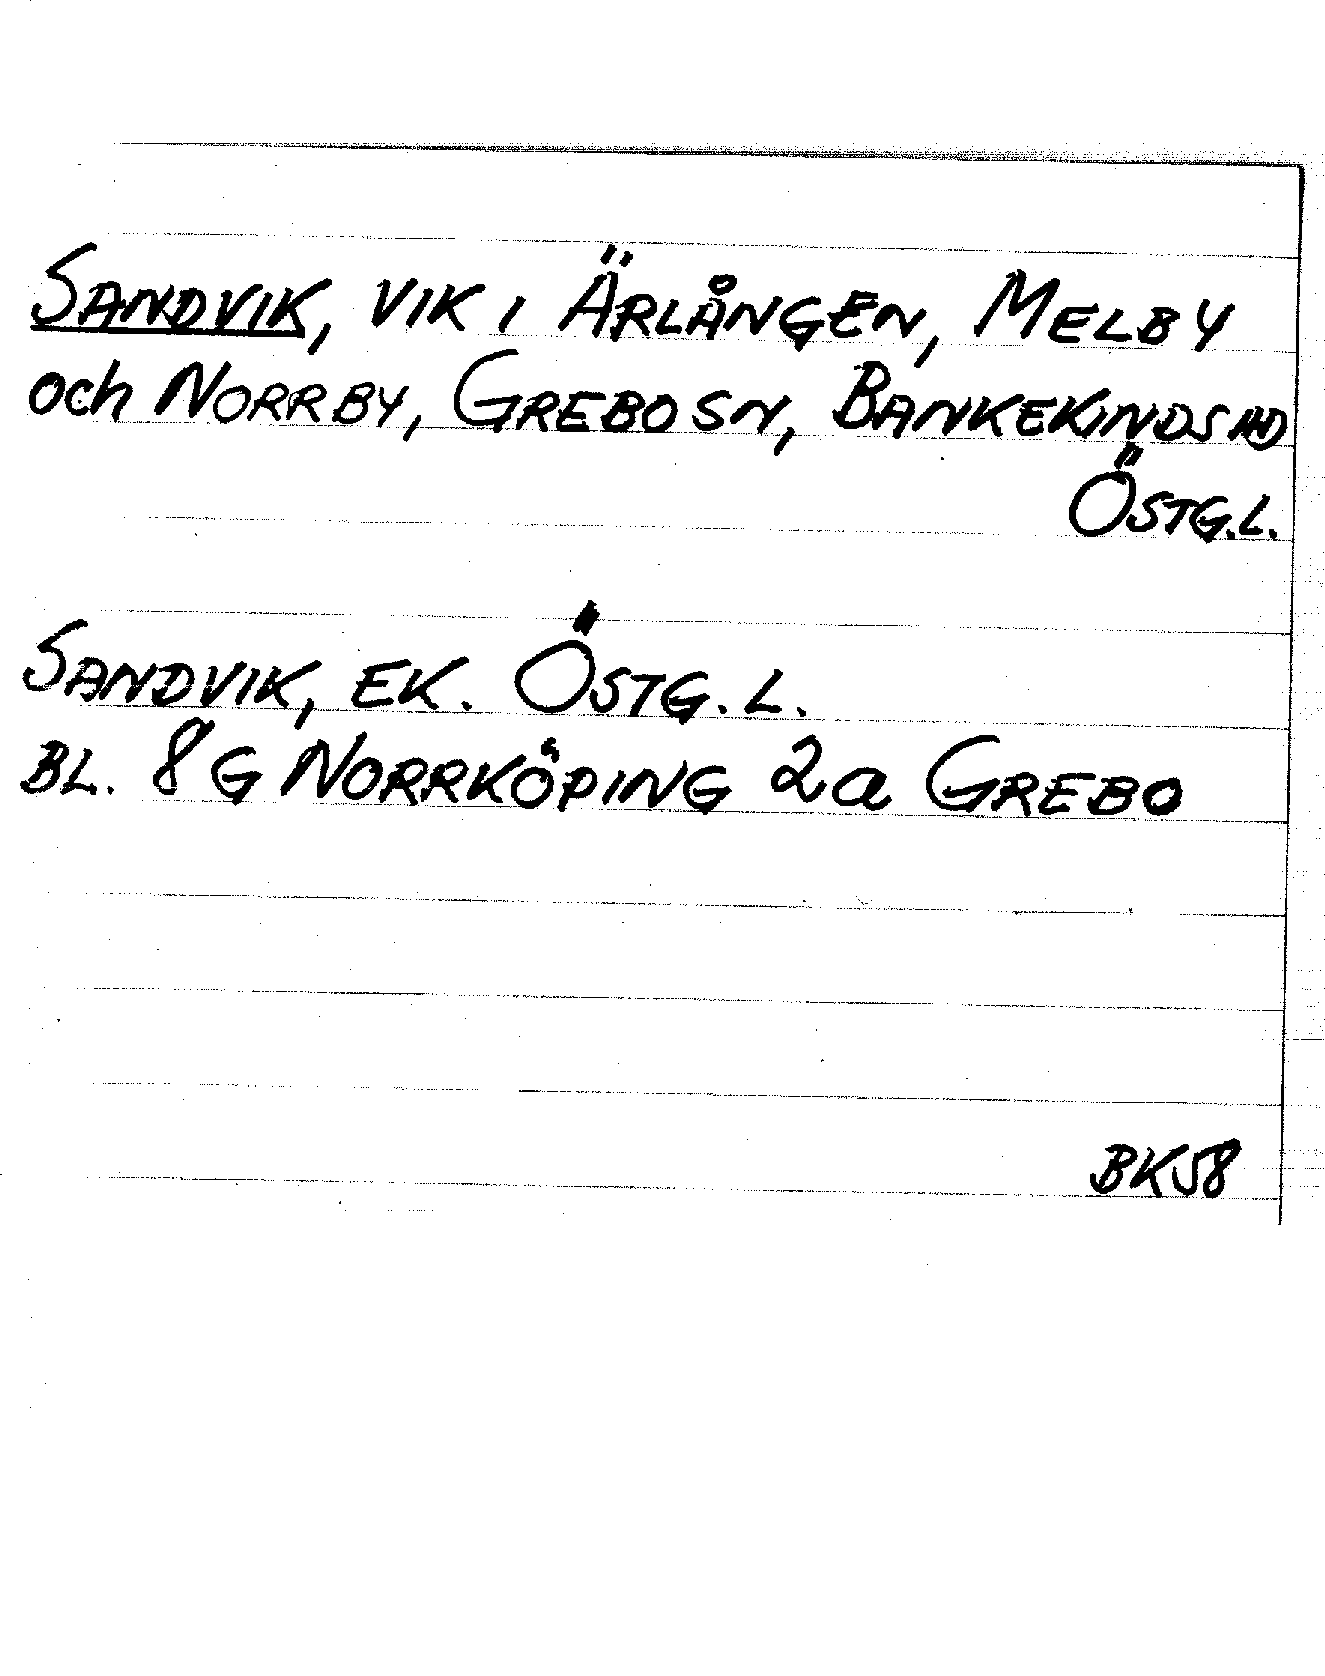 SANDVIK, VIK I ÄRLÅNGEN, MELBY
och NORRBY, GREBO SN, BANKEKINDS HD
ÖSTG.L.
SANDVIK, EK. ÖSTG. L.
BL. 8G NORRKÖPING 2a GREBO
BK58